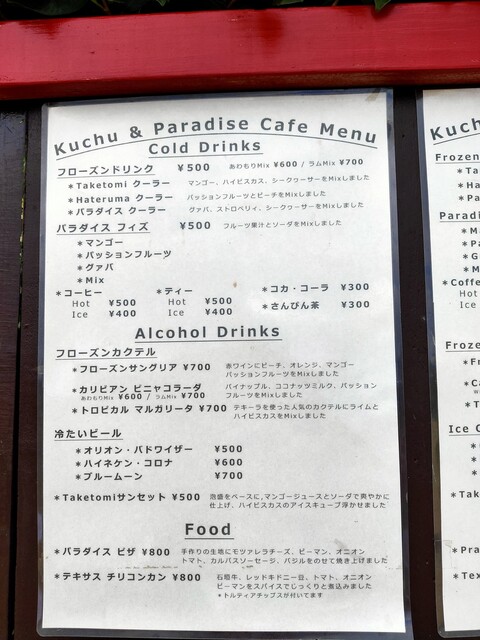 Kuchu & Paradise Cafe Menu
Cold Drinks
フローズンドリンク ¥500 あわもりMix ¥600 / ラムMix ¥700
＊Taketomi クーラー マンゴー、ハイビスカス、シークヮーサーをMixしました
＊Hateruma クーラー パッションフルーツとピーチをMixしました
＊パラダイス クーラー グァバ、ストロベリィ、シークヮーサーをMixしました
パラダイス フィズ ¥500 フルーツ果汁とソーダをMixしました
＊マンゴー
＊パッションフルーツ
＊グァバ
＊Mix
＊コーヒー
Hot ¥500
Ice ¥400
＊ティー
Hot ¥500
Ice ¥400
＊コカ・コーラ ¥300
＊さんぴん茶 ¥300
Alcohol Drinks
フローズンカクテル
＊フローズンサングリア ¥700 赤ワインにピーチ、オレンジ、マンゴー
パッションフルーツをMixしました
＊カリビアン ピニャコラーダ パイナップル、ココナッツミルク、パッション
あわもりMix ¥600 / ラムMix ¥700 フルーツをMixしました
＊トロピカル マルガリータ ¥700 テキーラを使った人気のカクテルにライムと
ハイビスカスをMixしました
冷たいビール
＊オリオン・バドワイザー ¥500
＊ハイネケン・コロナ ¥600
＊ブルームーン ¥700
＊Taketomiサンセット ¥500 泡盛をベースに,マンゴージュースとソーダで爽やかに
仕上げ、ハイビスカスのアイスキューブ浮かせました
Food
＊パラダイス ピザ ¥800 手作りの生地にモツァレラチーズ、ピーマン、オニオン
トマト、カルパスソーセージ、バジルをのせて焼き上げました
＊テキサス チリコンカン ¥800 石垣牛、レッドキドニー豆、トマト、オニオン
ピーマンをスパイスでじっくりと煮込みました
＊トルティアチップスが付いてます
Kuch
Frozen
＊Ta
＊Ha
＊Pa
Parad
＊M
＊P
＊G
＊M
＊Coffe
Hot
Ice
Froze
＊Fr
＊Ca
＊T
Ice C
＊Tak
＊Pra
＊Tex